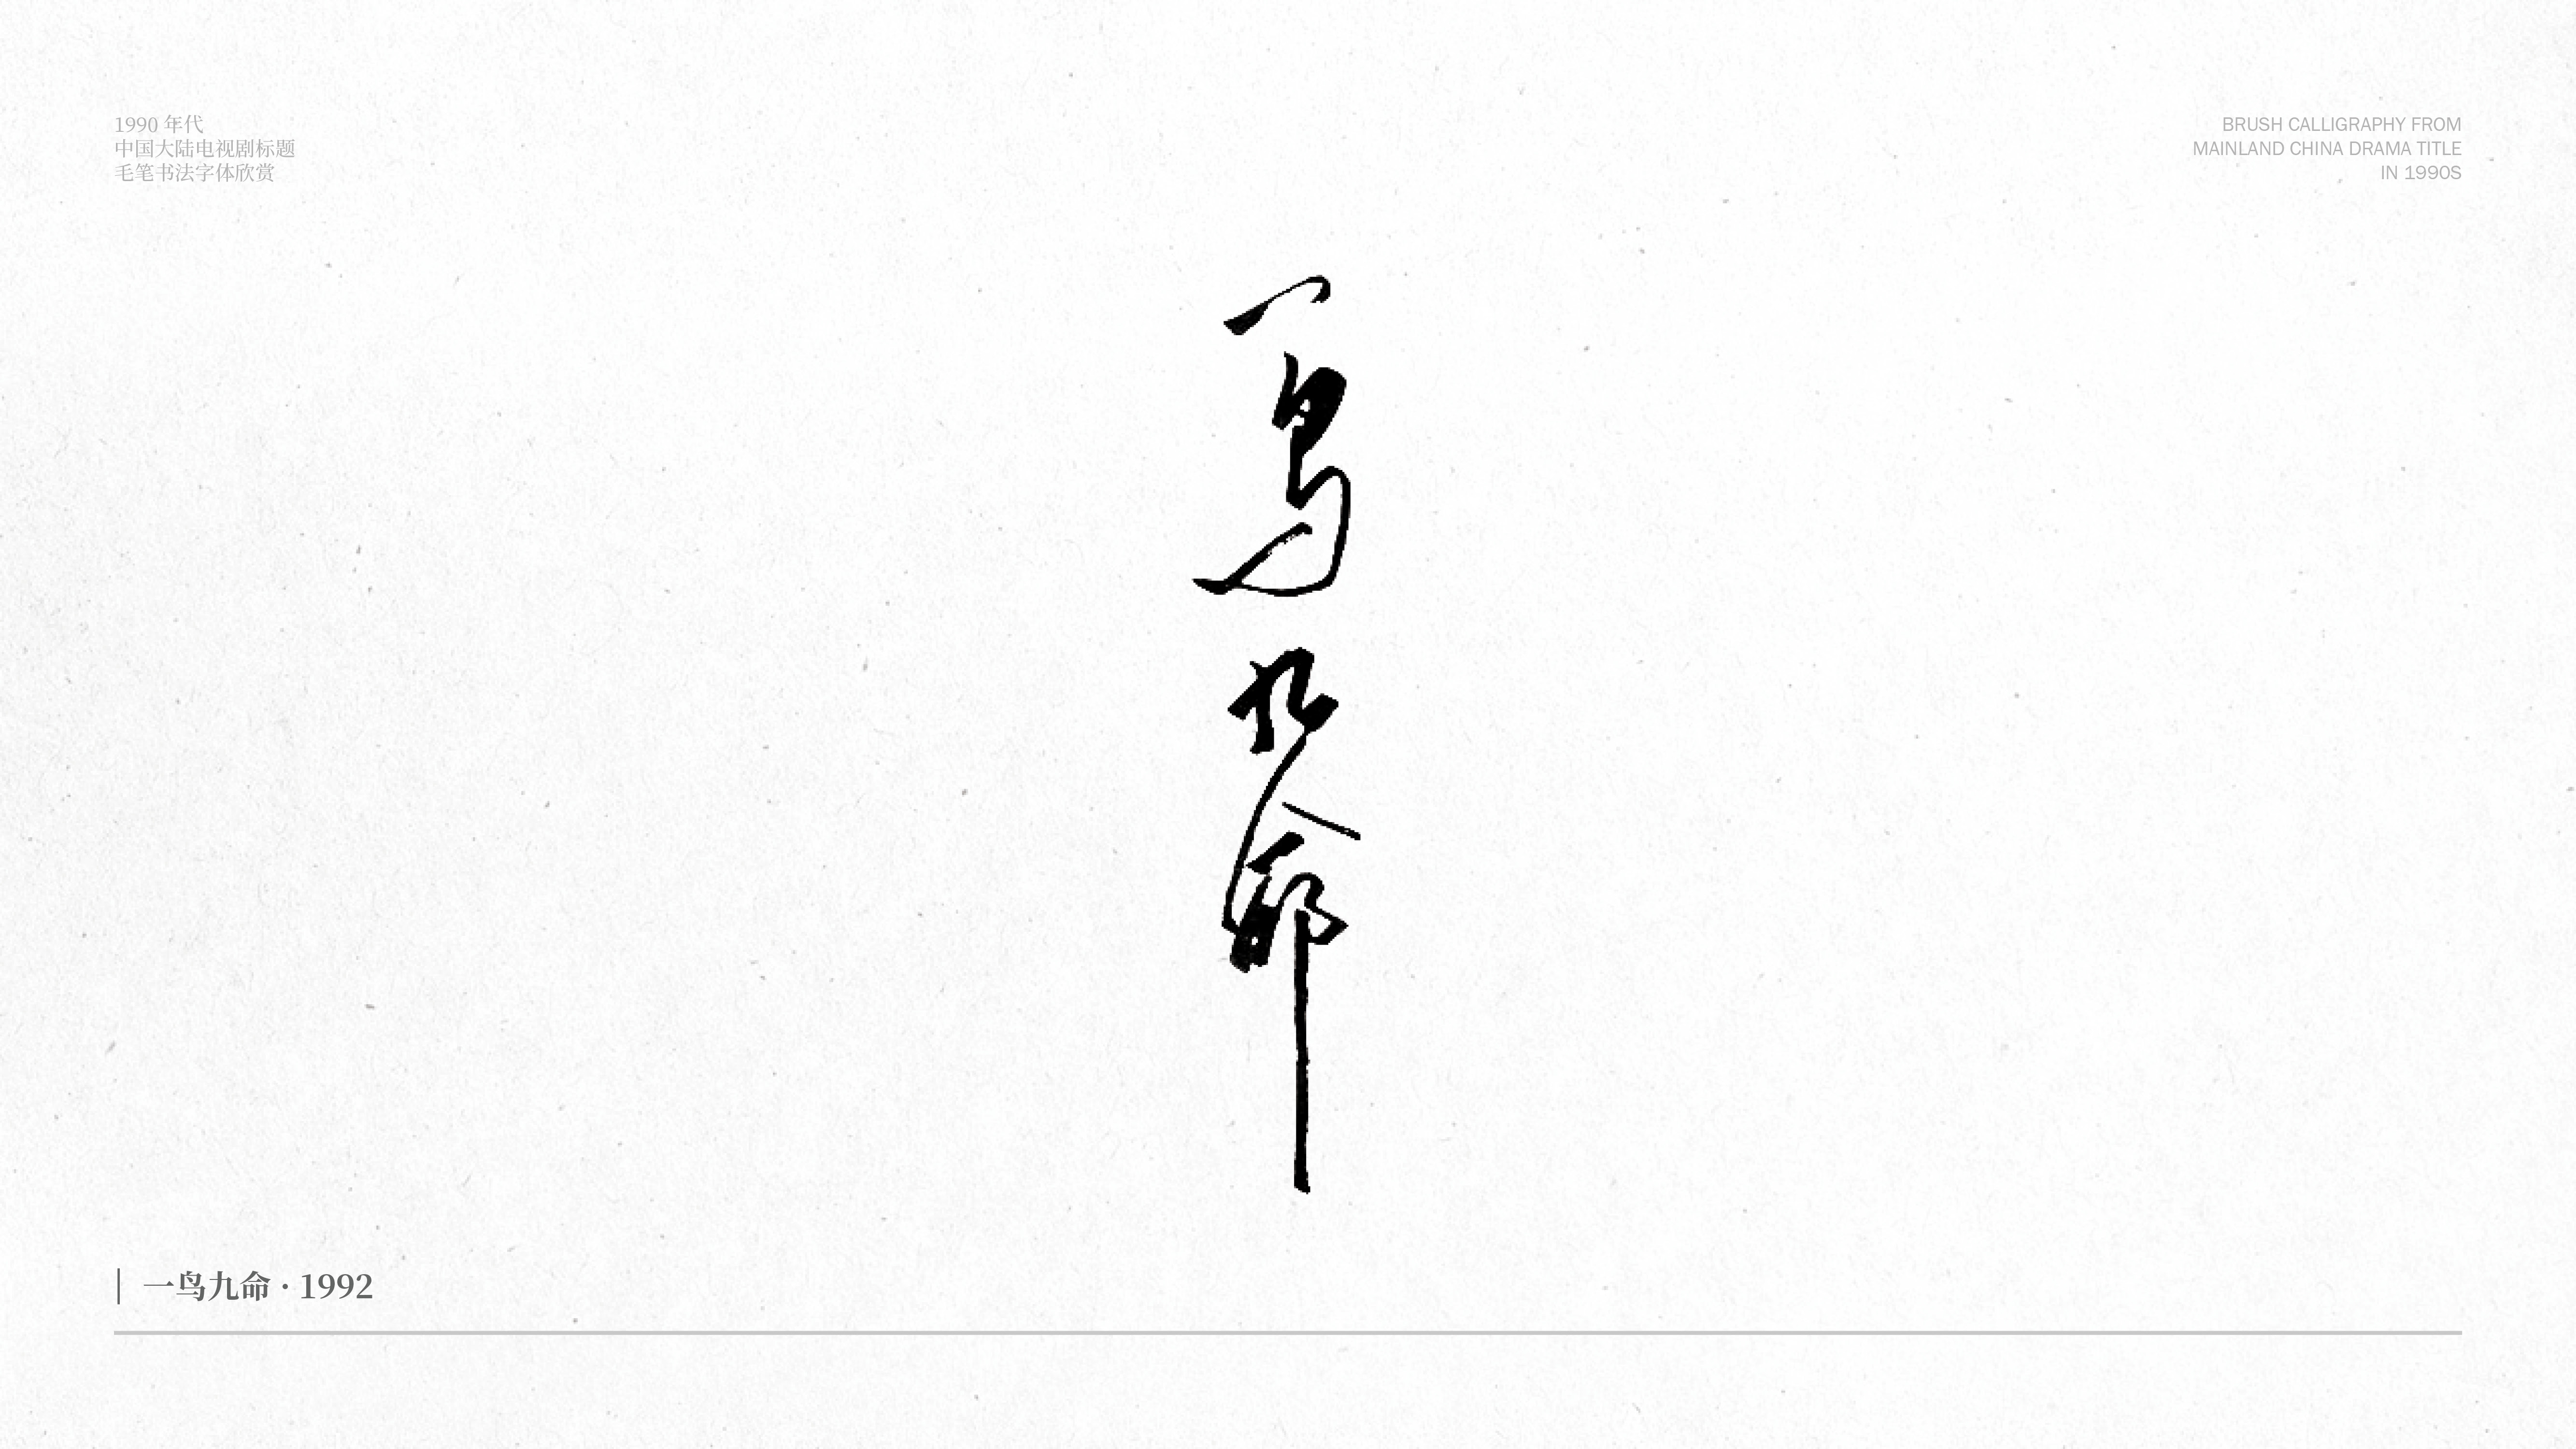 1990 年代
中国大陆电视剧标题
毛笔书法字体欣赏
BRUSH CALLIGRAPHY FROM
MAINLAND CHINA DRAMA TITLE
IN 1990S
一鸟九命
一鸟九命 · 1992